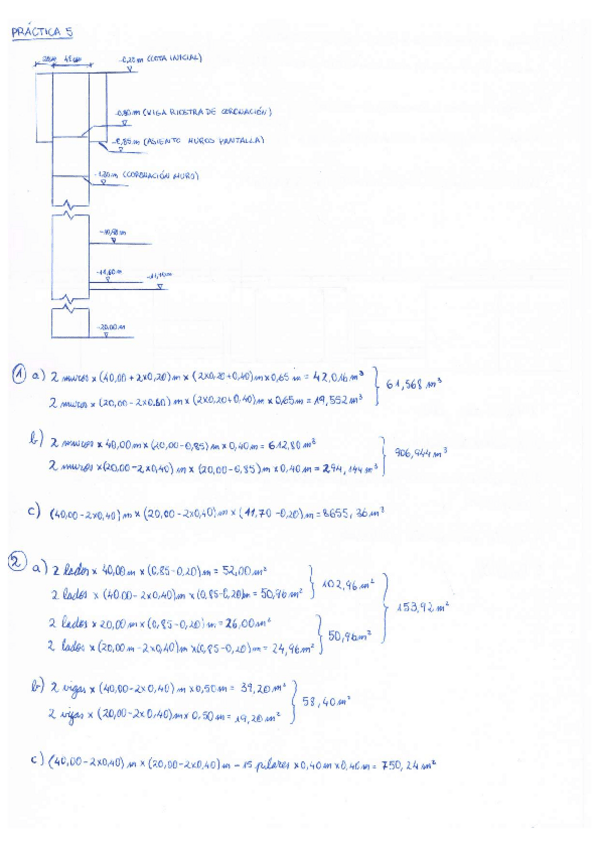 PRÁCTICA 5
-0,20 m (COTA INICIAL)
-0,80 m (VIGA RIOSTRA DE CORONACIÓN)
-0,85 m (ASIENTO MUROS PANTALLA)
(CORONACIÓN MURO)
-11,70 m
-20,00 m
1 a) 2 muros x (40,00 + 2x0,20) m x (2x0,20 + 0,40) m x 0,65 m = 42,016 m³
61,568 m³
2 muros x (20,00 - 2x0,60) m x (2x0,20 + 0,40) m x 0,65 m = 19,552 m³
b) 2 muros x 40,00 m x (20,00 - 0,85) m x 0,40 m = 612,80 m³
906,944 m³
2 muros x (20,00 - 2x0,40) m x (20,00 - 0,85) m x 0,40 m = 294,144 m³
c) (40,00 - 2x0,40) m x (20,00 - 2x0,40) m x (11,70 - 0,20) m = 8655,36 m³
2 a) 2 lados x 40,00 m x (0,85 - 0,20) m = 52,00 m²
102,96 m²
2 lados x (40,00 - 2x0,40) m x (0,85 - 0,20) m = 50,96 m²
153,92 m²
2 lados x 20,00 m x (0,85 - 0,20) m = 26,00 m²
50,96 m²
2 lados x (20,00 m - 2x0,40) m x (0,85 - 0,20) m = 24,96 m²
b) 2 vigas x (40,00 - 2x0,40) m x 0,50 m = 39,20 m²
58,40 m²
2 vigas x (20,00 - 2x0,40) m x 0,50 m = 19,20 m²
c) (40,00 - 2x0,40) m x (20,00 - 2x0,40) m - 15 pilares x 0,40 m x 0,40 m = 750,24 m²